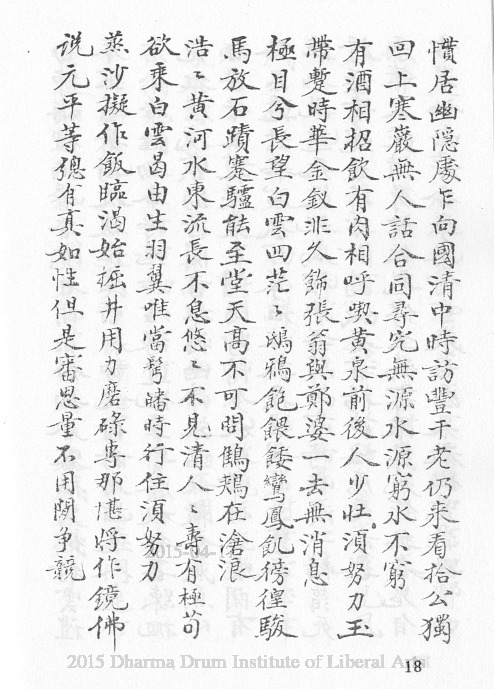 慣居幽隱處乍向國清中時訪豐干老仍来看拾公獨
回上寒巖無人話合同尋究無源水源窮水不窮
有酒相招飲有肉相呼喫黃泉前後人少壯湏努力玉
帶蹔時華金釵非久餝張翁與鄭婆一去無消息
極目兮長望白雲四茫〻鴟鴉飽餧鸞鳳飢徬徨駿
馬放石蹟蹇驢能至堂天髙不可問鷦鶊在滄浪
浩〻黃河水東流長不息悠〻不見清人〻壽有極茍
欲乗白雲曷由生羽翼唯當鬂皤時行住湏努力
蒸沙擬作飯臨渴始掘井用力磨碌甎那堪將作鏡佛
说元平等緫有真如性但是審思量不用閑争競
2015 Dharma Drum Institute of Liberal Arts
18